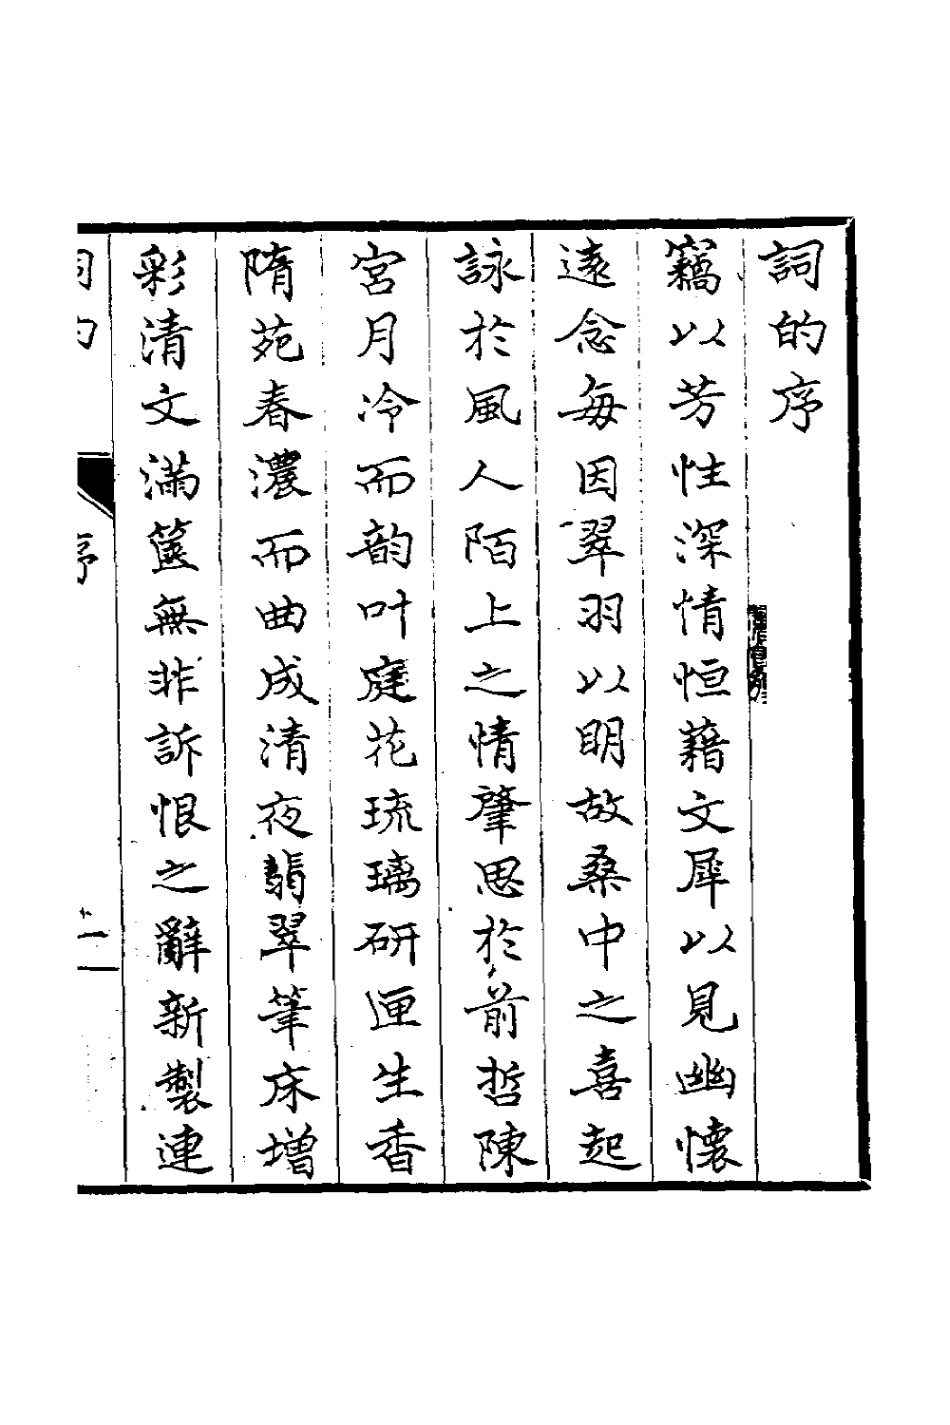 詞的序
竊以芳性深情恒藉文犀以見幽懷
遠念每因翠羽以明故桑中之喜起
詠於風人陌上之情肇思於前哲陳
宮月冷而韵叶庭花琉璃研匣生香
隋苑春濃而曲成清夜翡翠筆床增
彩清文滿篋無非訴恨之辭新製連
詞的
序
一